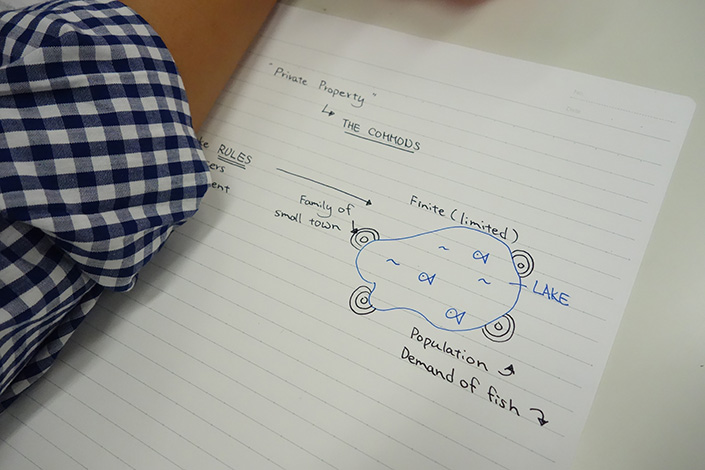 "Private Property"
↳ THE COMMONS
RULES
Family of
small town
Finite (limited)
LAKE
Population
Demand of fish